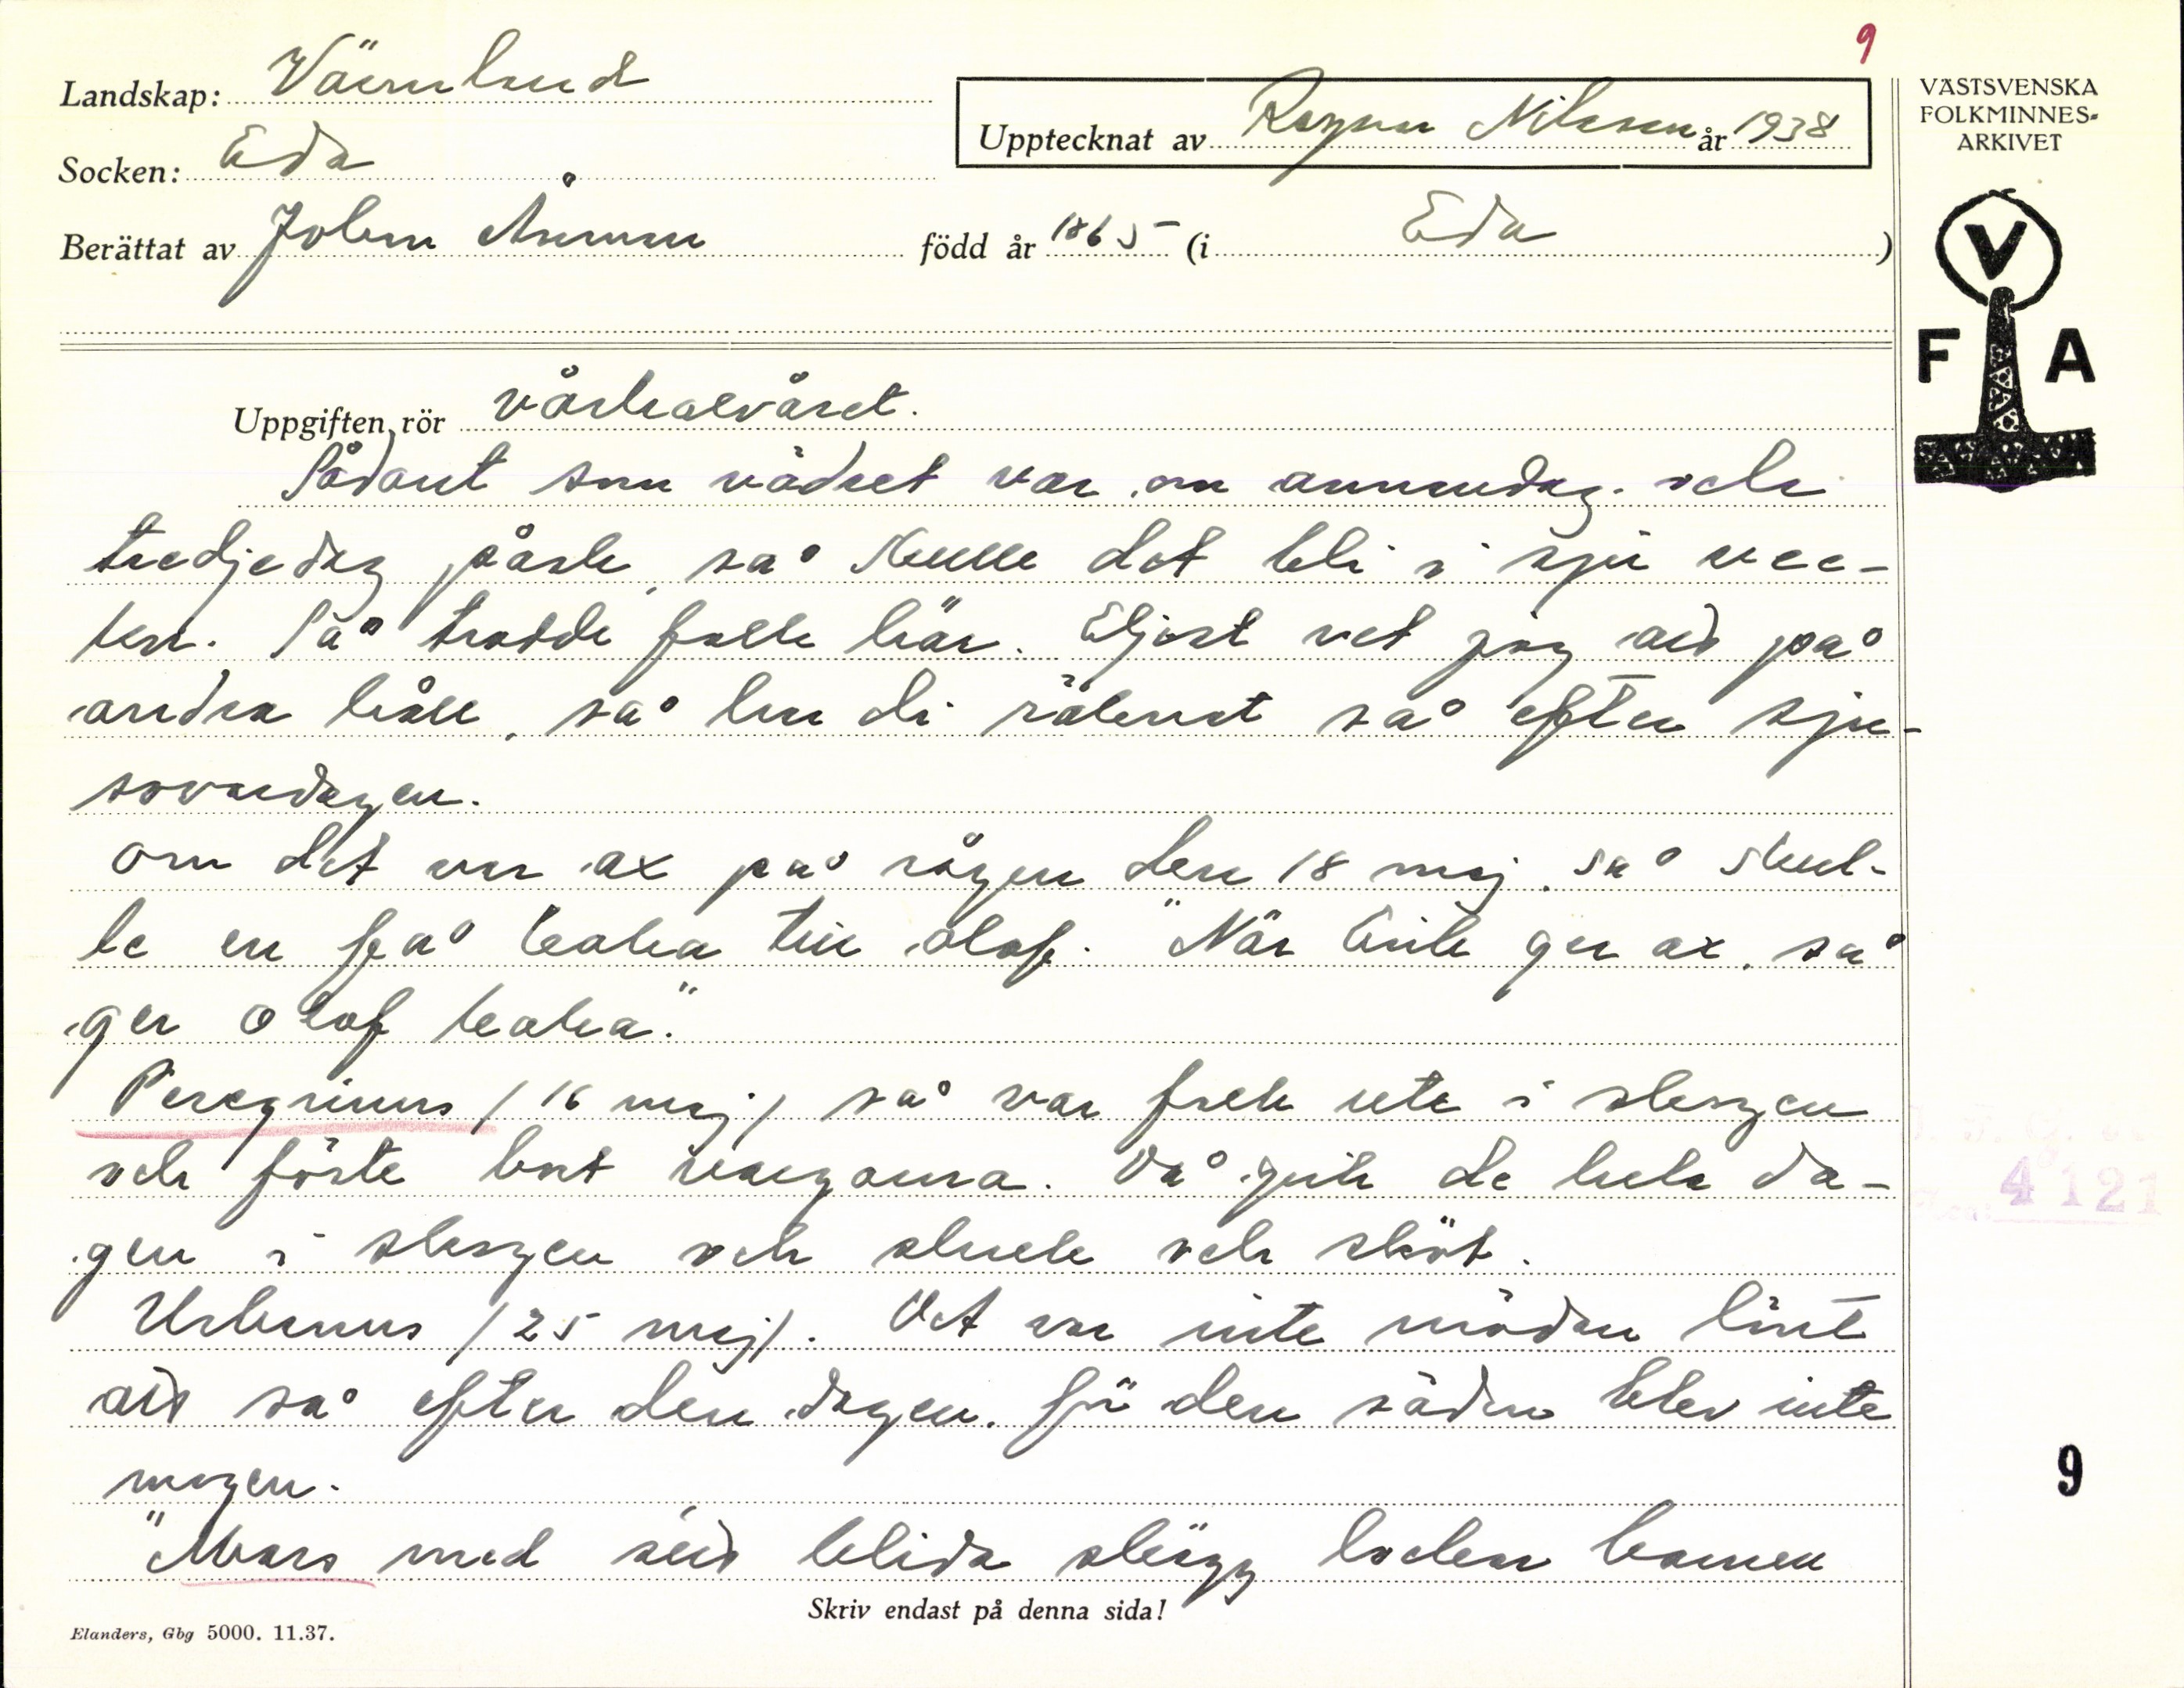 9
Landskap: Värmland
Upptecknat av Ragnar Nilsson år 1938
VÄSTSVENSKA
FOLKMINNES-
ARKIVET
Socken: Eda
Berättat av Johan Åman född år 1865 (i Eda)
V
F A
Uppgiften rör vårhalvåret.
Sådant som vädret var om annandag och
tredjedag påsk, så skulle det bli i sju vec-
kor. Så trodde folk här. Eljest vet jag att på
andra håll, så har di räknat så efter sju-
sovardagen.
Om det var ax på rågen den 18 maj, så skul-
le en få kaka till Olof. "När Erik ger ax, så
ger Olof kaka."
Peregrinus (16 maj) så var folk ute i skogen
och körde bort vargarna. Då gick de hela da-
gen i skogen och skrek och sköt.
Urbanus (25 maj). Det var inte mödan lönt
att så efter den dagen, för den säden blev inte
mogen.
"Mars med sitt blida skägg lockar barnen
Skriv endast på denna sida!
Elanders, Gbg 5000. 11.37.
4121
9